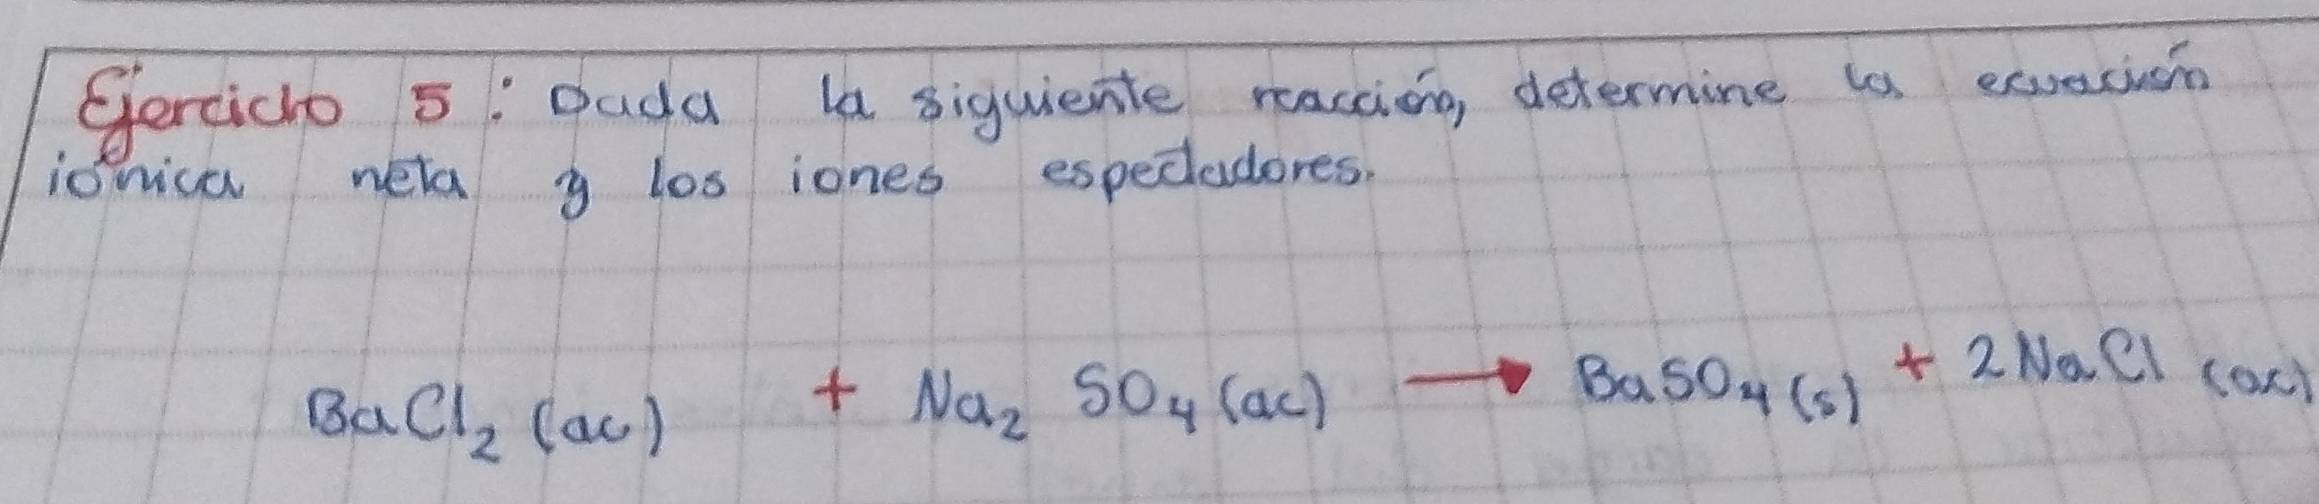 Ejercicio 5: Dada la siguiente reacción, determine la ecuación
iónica neta y los iones espectadores.
BaCl₂ (ac) + Na₂ SO₄ (ac) → BaSO₄ (s) + 2NaCl (ac)